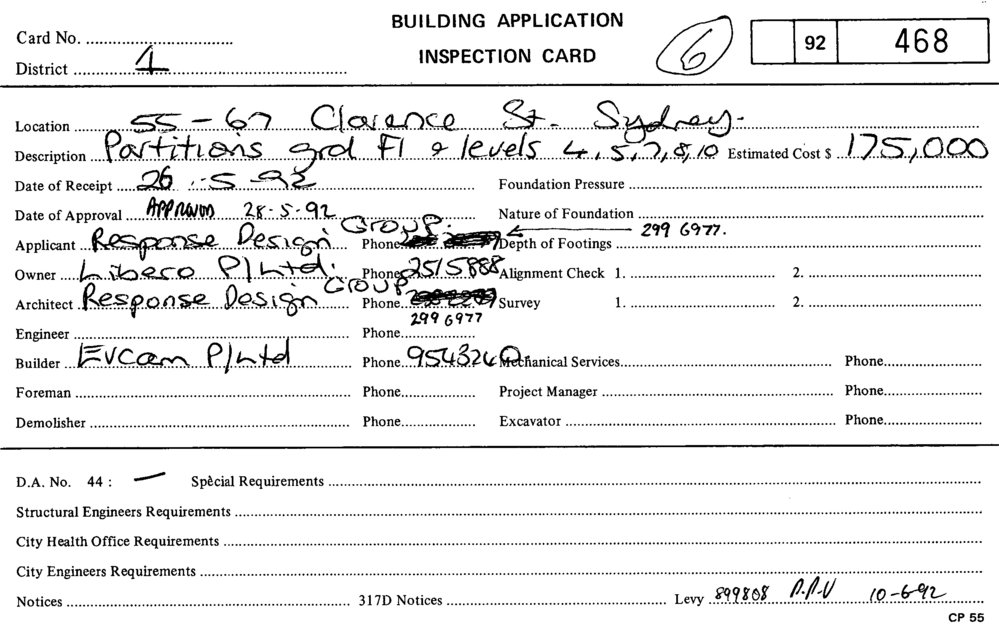 BUILDING APPLICATION
INSPECTION CARD
Card No.
District 1
6
92 468
Location 55-67 Clarence St. Sydney.
Description Partitions grd Fl & levels 4, 5, 7, 8, 10 Estimated Cost $ 175,000
Date of Receipt 26.5-92 Foundation Pressure
Date of Approval APPROVED 28-5-92 Nature of Foundation
Applicant Response Design Group. Phone 299 6977. Depth of Footings
Owner Libeco P/Ltd. Phone 2515888 Alignment Check 1. 2.
Architect Response Design Group Phone 299 6977 Survey 1. 2.
Engineer Phone
Builder Evcam P/Ltd Phone 9543240 Mechanical Services Phone
Foreman Phone Project Manager Phone
Demolisher Phone Excavator Phone
D.A. No. 44 : — Spècial Requirements
Structural Engineers Requirements
City Health Office Requirements
City Engineers Requirements
Notices 317D Notices Levy 899808 10-6-92
CP 55